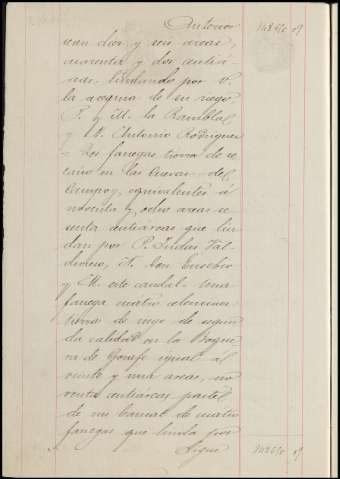 Anterior
can dies y seis areas,
cuarenta y dos centia
reas. lindando por N.
la acequia de su riego
P. y M. la Rambla
y L. Antonio Rodriguez
= Dos fanegas tierra de se
cano en las Cuevas del
Campo, equivalentes á
noventa y ocho areas se
senta centiareas que lin
dan por P. Indas Val
divieso, N. Don Eusebio
y M. este caudal. Una
fanega cuatro celemines
tierra de riego de segun
da calidad en la Boque
ra de Gorafe igual al
veinte y una areas, no
venta centiareas parte
de un bancal de cuatro
fanegas que linda por
Sigue